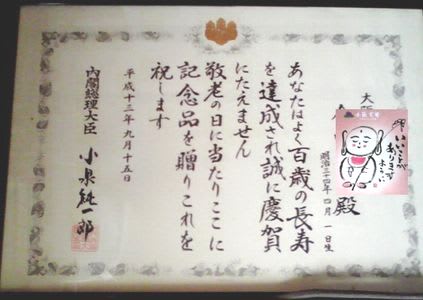 殿
明治三十四年四月一日生
あなたはよく百歳の長寿
を達成され誠に慶賀
にたえません
敬老の日に当たりここに
記念品を贈りこれを
祝します
平成十三年九月十五日
内閣総理大臣 小泉純一郎
いいことが
ありますように